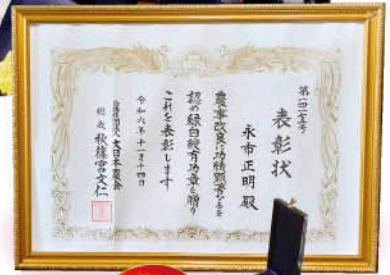 表彰状
永市正明殿
農事改良に功績顕著なるを
認め緑白綬有功章を贈り
これを表彰します
令和六年十一月十四日
公益社団法人 大日本農会
総裁 秋篠宮文仁